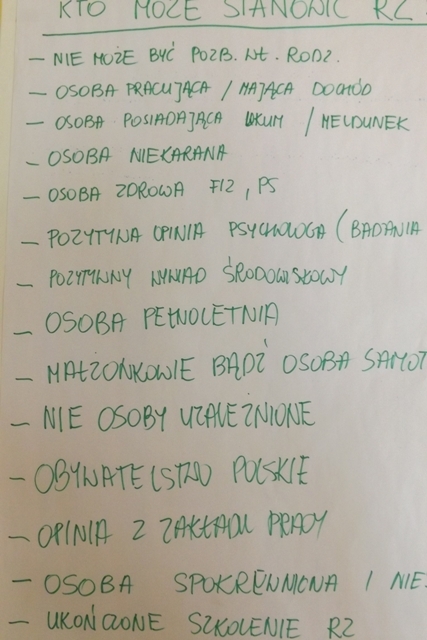 KTO MOŻE STANOWIĆ RZ
- NIE MOŻE BYĆ POZB. WŁ. RODZ.
- OSOBA PRACUJĄCA / MAJĄCA DOCHÓD
- OSOBA POSIADAJĄCA LOKUM / MELDUNEK
- OSOBA NIEKARANA
- OSOBA ZDROWA FIZ, PS
- POZYTYWNA OPINIA PSYCHOLOGA (BADANIA
- POZYTYWNY WYWIAD ŚRODOWISKOWY
- OSOBA PEŁNOLETNIA
- MAŁŻONKOWIE BĄDŹ OSOBA SAMOT
- NIE OSOBY UZALEŻNIONE
- OBYWATELSTWO POLSKIE
- OPINIA Z ZAKŁADU PRACY
- OSOBA SPOKREWNIONA I NIE
- UKOŃCZONE SZKOLENIE RZ